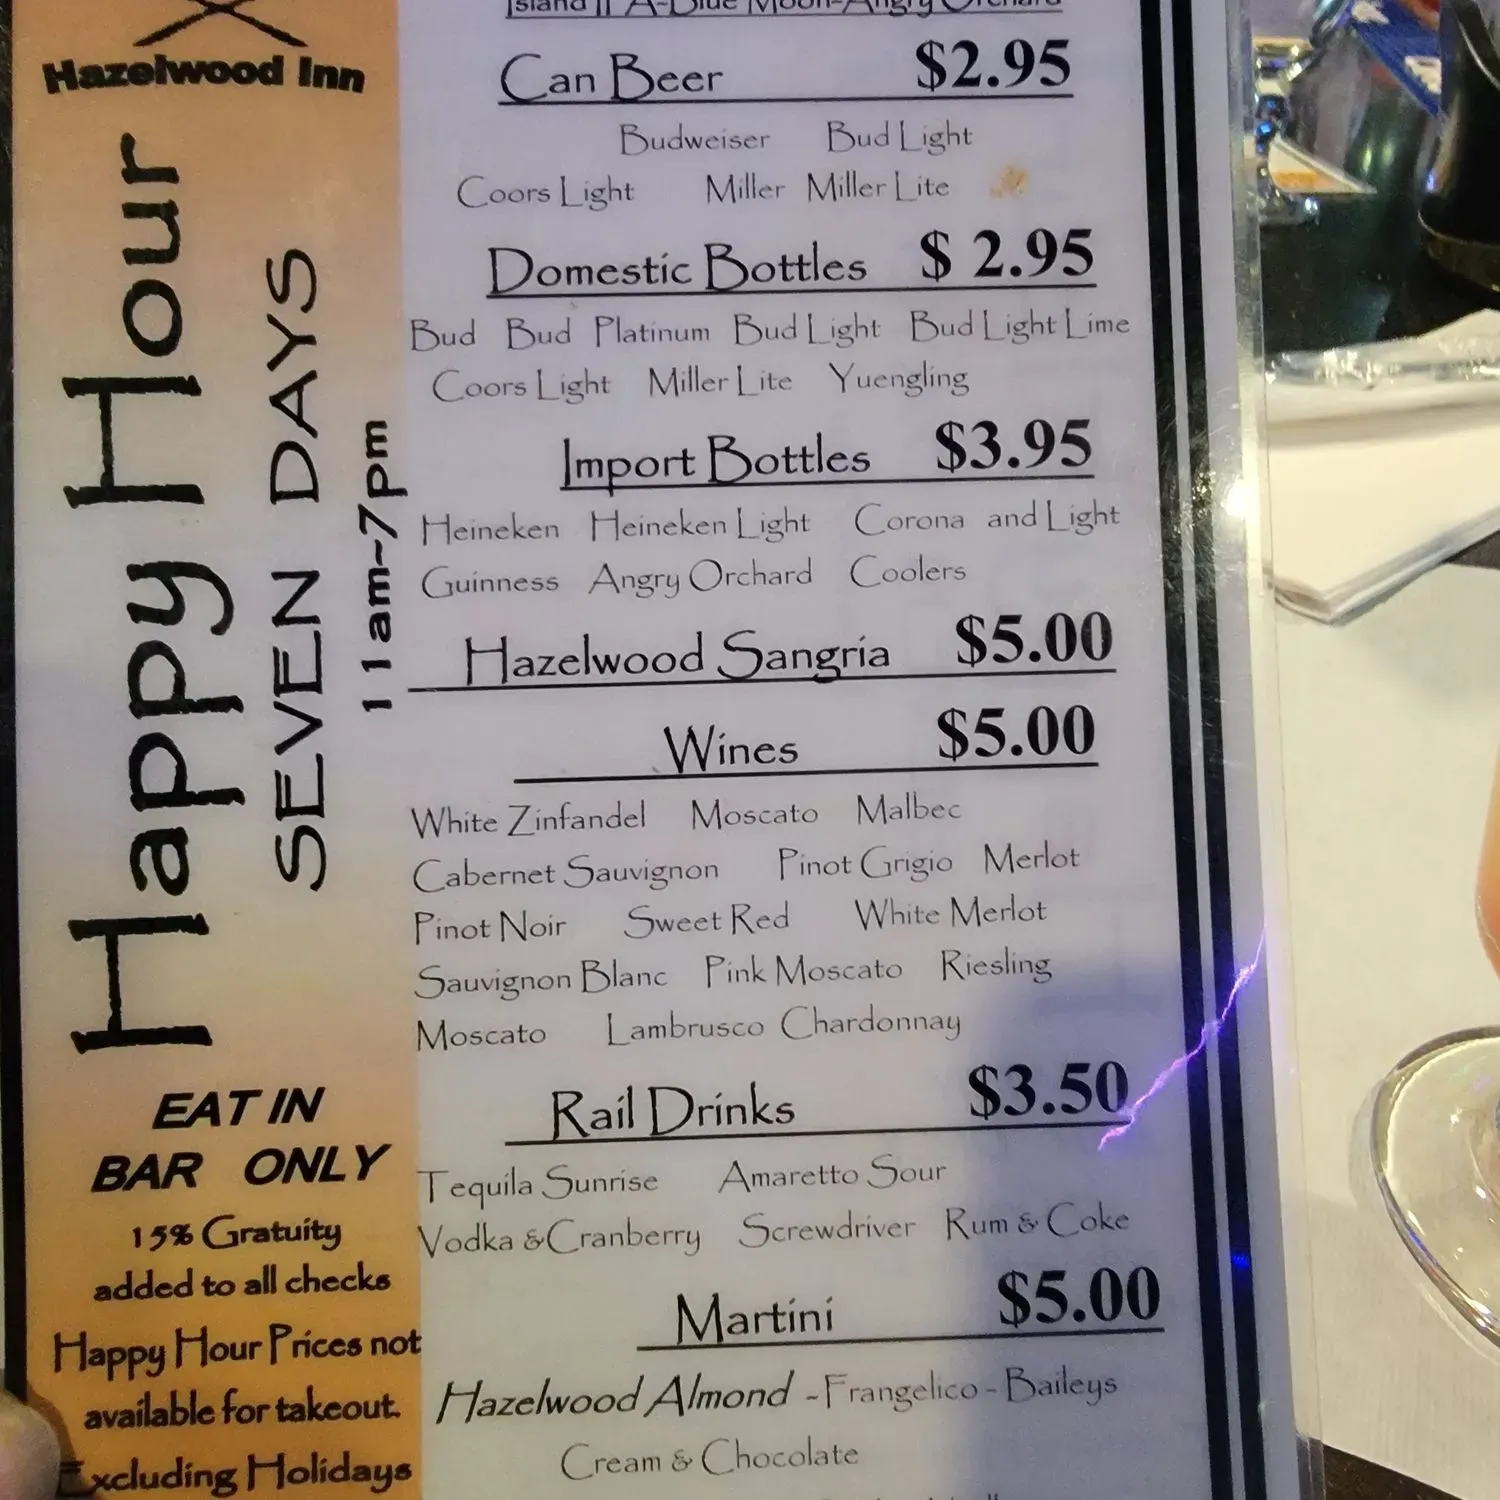 Hazelwood Inn
Happy Hour
SEVEN DAYS
11am-7pm
EAT IN
BAR ONLY
15% Gratuity
added to all checks
Happy Hour Prices not
available for takeout.
Excluding Holidays
Island IPA-Blue Moon-Angry Orchard
Can Beer $2.95
Budweiser Bud Light
Coors Light Miller Miller Lite
Domestic Bottles $ 2.95
Bud Bud Platinum Bud Light Bud Light Lime
Coors Light Miller Lite Yuengling
Import Bottles $3.95
Heineken Heineken Light Corona and Light
Guinness Angry Orchard Coolers
Hazelwood Sangria $5.00
Wines $5.00
White Zinfandel Moscato Malbec
Cabernet Sauvignon Pinot Grigio Merlot
Pinot Noir Sweet Red White Merlot
Sauvignon Blanc Pink Moscato Riesling
Moscato Lambrusco Chardonnay
Rail Drinks $3.50
Tequila Sunrise Amaretto Sour
Vodka & Cranberry Screwdriver Rum & Coke
Martini $5.00
Hazelwood Almond - Frangelico - Baileys
Cream & Chocolate